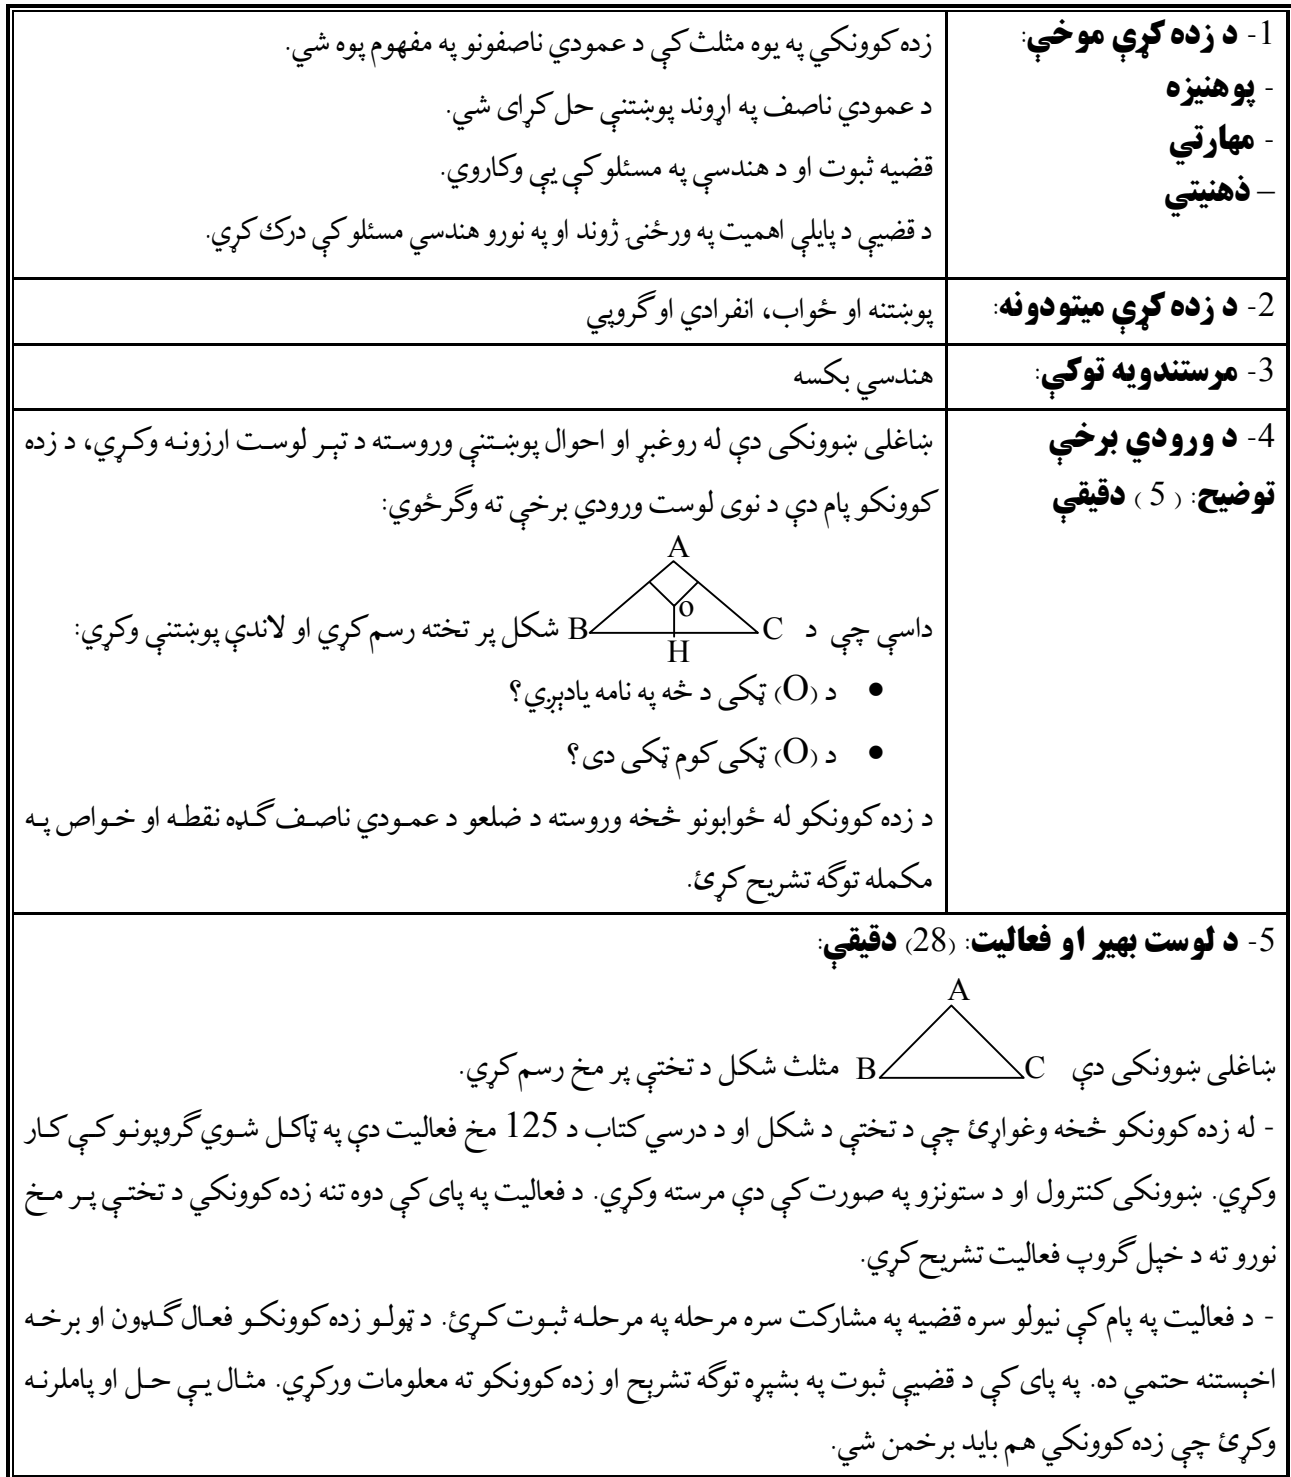 1- د زده کړې موخې:
- پوهنیزه
- مهارتي
– ذهنیتي
زده کوونکي په یوه مثلث کې د عمودي ناصفونو په مفهوم پوه شي.
د عمودي ناصف په اړوند پوښتنې حل کړای شي.
قضیه ثبوت او د هندسې په مسئلو کې یې وکاروي.
د قضیې د پایلې اهمیت په ورځنۍ ژوند او په نورو هندسي مسئلو کې درک کړي.
2- د زده کړې میتودونه:
پوښتنه او ځواب، انفرادي او گروپي
3- مرستندویه توکي:
هندسي بکسه
4- د ورودي برخې
توضیح: ( 5 ) دقیقې
ښاغلی ښوونکی دې له روغبړ او احوال پوښتنې وروسته د تېر لوست ارزونه وکړي، د زده
کوونکو پام دې د نوی لوست ورودي برخې ته وگرځوي:
A
o
داسې چې د C B شکل پر تخته رسم کړي او لاندې پوښتنې وکړي:
H
• د (O) ټکی د څه په نامه یادېږي؟
• د (O) ټکی کوم ټکی دی؟
د زده کوونکو له ځوابونو څخه وروسته د ضلعو د عمودي ناصف گډه نقطه او خواص په
مکمله توگه تشریح کړئ.
5- د لوست بهیر او فعالیت: (28) دقیقې:
A
ښاغلی ښوونکی دې C B مثلث شکل د تختې پر مخ رسم کړي.
- له زده کوونکو څخه وغواړئ چې د تختې د شکل او د درسي کتاب د 125 مخ فعالیت دې په ټاکل شوي گروپونو کې کار
وکړي. ښوونکی کنترول او د ستونزو په صورت کې دې مرسته وکړي. د فعالیت په پای کې دوه تنه زده کوونکي د تختې پر مخ
نورو ته د خپل گروپ فعالیت تشریح کړي.
- د فعالیت په پام کې نیولو سره قضیه په مشارکت سره مرحله په مرحله ثبوت کړئ. د ټولو زده کوونکو فعال گډون او برخه
اخېستنه حتمي ده. په پای کې د قضیې ثبوت په بشپړه توگه تشرېح او زده کوونکو ته معلومات ورکړي. مثال یې حل او پاملرنه
وکړئ چې زده کوونکي هم باید برخمن شي.